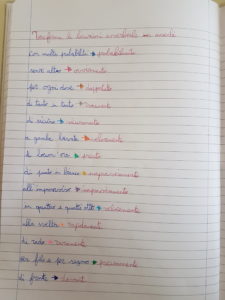 Trasforma le locuzioni avverbiali in avverbi
con molta probabilità → probabilmente
senz'altro → sicuramente
per ogni dove → dappertutto
di tanto in tanto → raramente
di sicuro → sicuramente
a gambe levate → velocemente
di buon'ora → presto
di punto in bianco → improvvisamente
all'improvviso → improvvisamente
in quattro e quattr'otto → velocemente
alla svelta → rapidamente
di rado → raramente
per filo e per segno → precisamente
di fronte → davanti